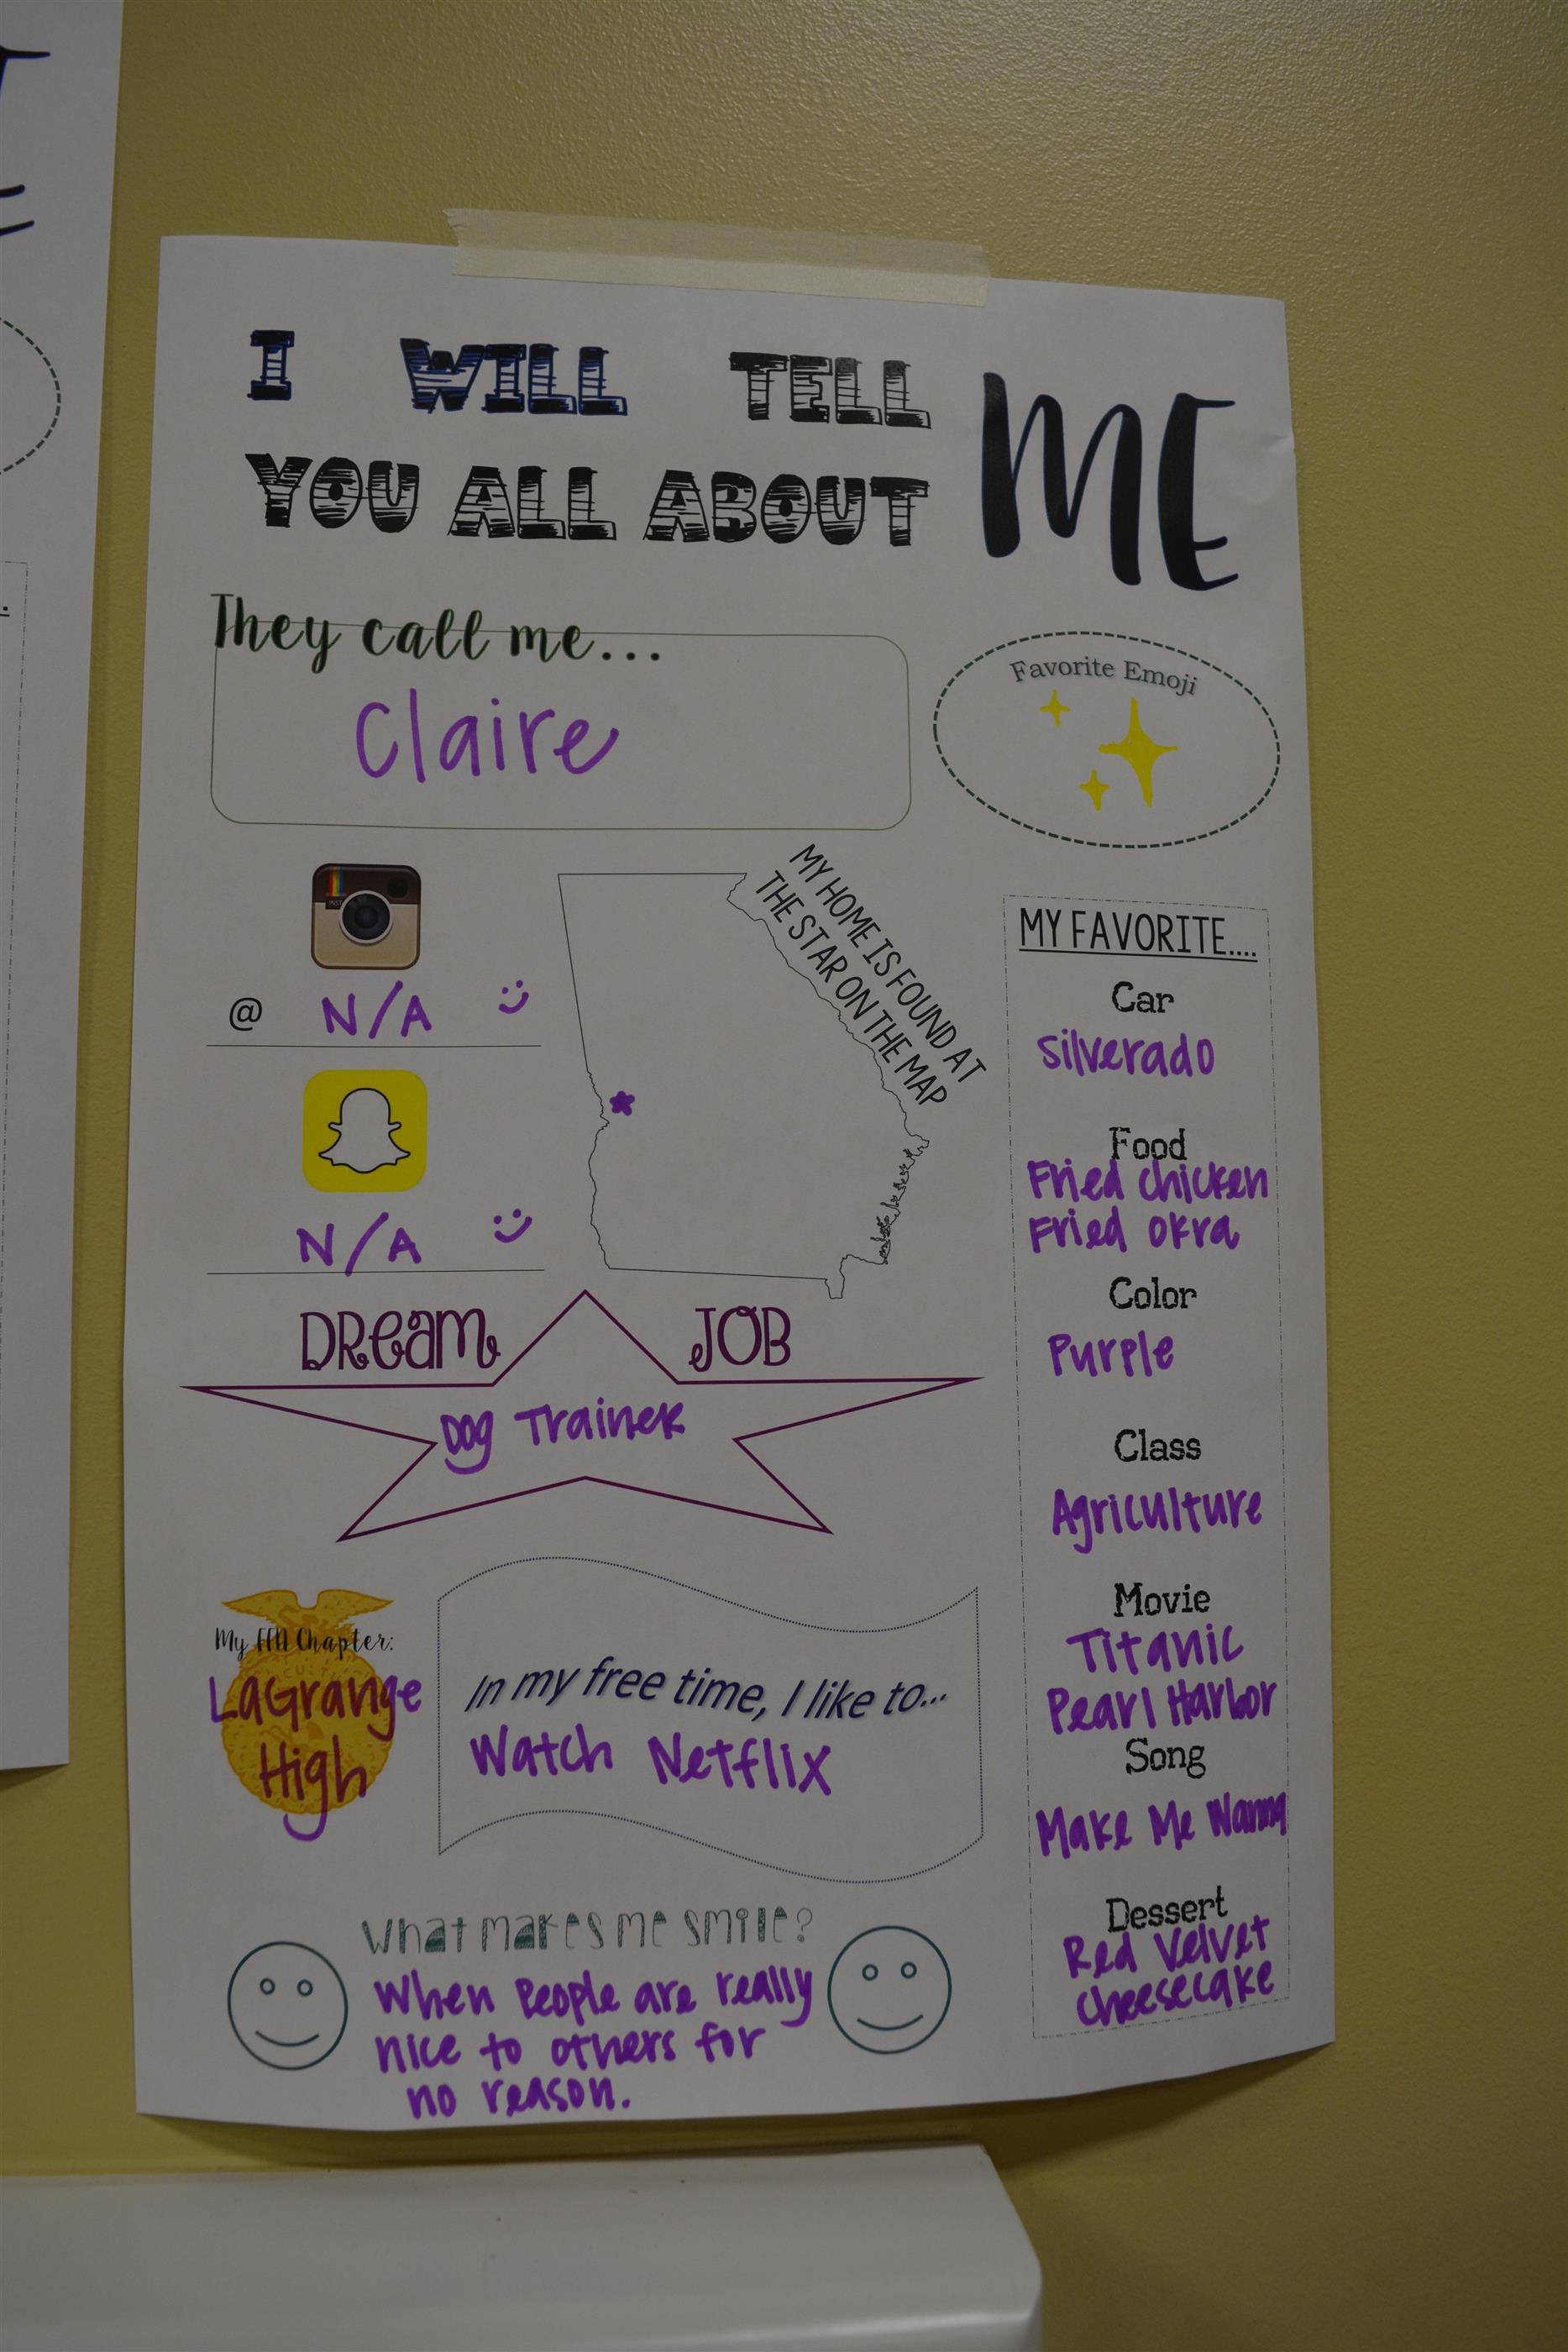 I WILL TELL
YOU ALL ABOUT
ME
They call me...
Claire
Favorite Emoji
@ N/A
N/A
MY HOME IS FOUND AT
THE STAR ON THE MAP
DREAM JOB
Dog Trainer
My FFA Chapter:
LaGrange
High
In my free time, I like to...
Watch Netflix
What makes me smile?
When People are really
nice to others for
no reason.
MY FAVORITE....
Car
Silverado
Food
Fried chicken
Fried okra
Color
Purple
Class
Agriculture
Movie
Titanic
Pearl Harbor
Song
Make Me Wanna
Dessert
Red Velvet
Cheesecake